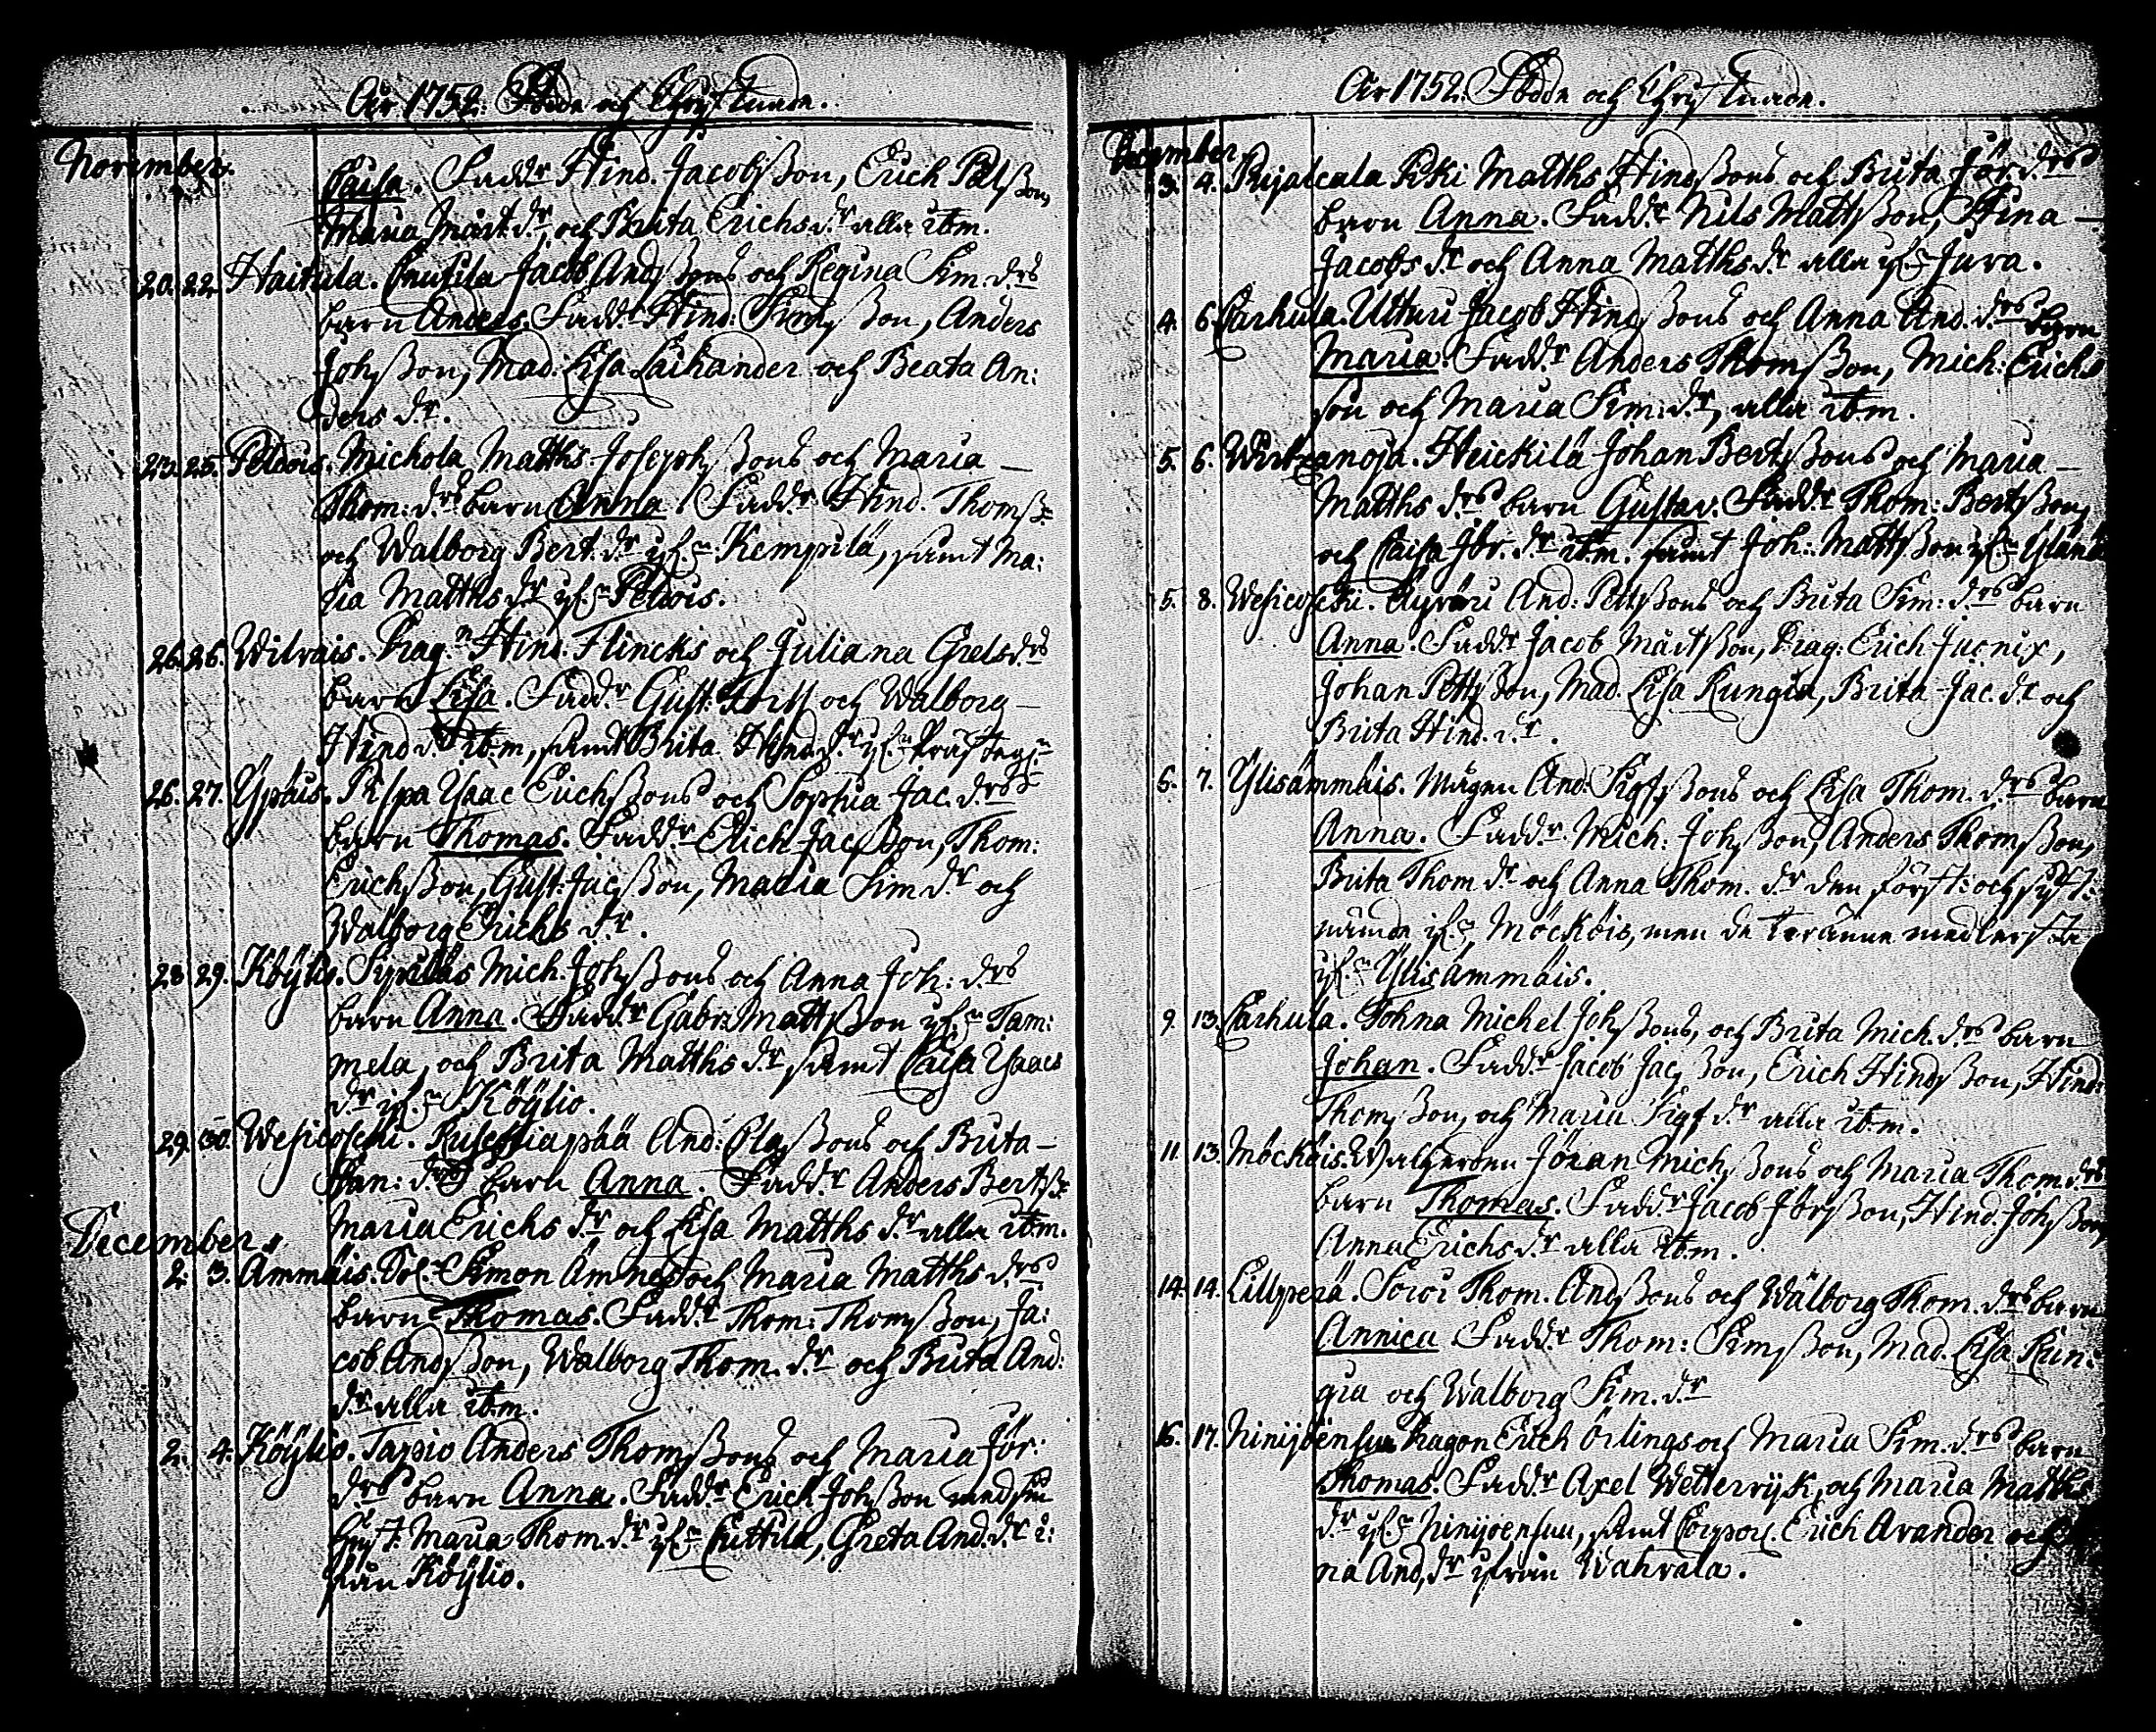 År 1752. Födde och Christnade.
November.
Caisa. Fadd:r Hind. Jacobsson, Erich Pålsson,
Maria Mårt.d:r, och Brita Erichs d:r alla ibm.
20. 22. Haitula. Jacob Andssons och Regina Sim.d:rs
barn Anders. Fadd:r Hind. Simsson, Anders
Johsson, Mad: Lisa Laihander och Beata An:
ders d:r.
23. 25. Peldois. Michola Matths Josephssons och Maria
Thom: d:rs barn Anna. Fadd:r Hind. Thomss:
och Walborg Bert. d:r ifr:n Kempilä, samt Ma:
ria Matths d:r ifr:n Peldois.
26. 26. Wilvais. Drag:n Hind. Flincks och Juliana Grels d:rs
barn Lisa. Fadd:r Gust. och Walborg
Hind d:r ibm, samt Brita Hind d:r ifr:n
26. 27. Ypäis. Pispa Ysaac Erichssons och Sophia Jac. d:rs
barn Thomas. Fadd:r Erich Jacsson, Thom:
Erichsson, Gust. Jacsson, Maria Sim d:r och
Walborg Erichs d:r.
28 29. Köÿlio. Sipiläs Mich. Johssons och Anna Joh: d:rs
barn Anna. Fadd:r Gabr: Mattsson ifr:n Tam:
mela, och Brita Matths d:r, samt Caisa Ysaacs
d:r ifr:n Köÿlio.
29. 30. Wesicoschi. And: Olassons och Brita
Dan: d:rs barn Anna. Fadd:r Anders Bertss:
Maria Erichs d:r och Lisa Matths d:r alla ibm.
December.
2. 3. Ammäis. Sol:n Simon och Maria Matths d:rs
barn Thomas. Fadd:r Thom: Thomsson, Ja:
cob Andsson, Walborg Thom. d:r och Brita And:
d:r alla ibm.
2. 4. Köÿlio. Tapio Anders Thomssons och Maria Jör:
d:rs barn Anna. Fadd:r Erich Johsson med sin
hust. Maria Thom. d:r ifr:n Cuttila, Greta And. d:r i:
från Köÿlio.
År 1752. Födde och Christnade.
December
3. 4. Pijalcala Piki Matths Hindssons och Brita Jör. d:rs
barn Anna. Fadd:r Nils Mattsson, Stina
Jacobs d:r och Anna Matths d:r alla ifr:n Jura.
4. 6. Carhula. Uttari Jacob Hindssons och Anna And. d:rs barn
Maria. Fadd:r Anders Thomsson, Mich: Erichs
son och Maria Sim: d:r, alla ibm.
5. 6. Wirtzanoja. Heickilä Johan Bertssons och Maria
Matths d:rs barn Gustav. Fadd:r Thom: Bertsson,
och Caisa Jör. d:r ibm. samt Joh: Mattsson ifr:n Yläne
5. 8. Wesicoschi. Äyräri And: Pettssons och Brita Sim: d:rs barn
Anna. Fadd:r Jacob Mårtsson, Drag: Erich Juenix,
Johan Pettsson, Mad. Lisa Rungia, Brita Jac. d:r och
Brita Hind. d:r.
6. 7. Ylisämmäis. Mågen And: Sigfssons och Lisa Thom. d:rs barn
Anna. Fadd:r Mich: Johsson, Anders Thomsson,
Brita Thom d:r och Anna Thom. d:r den först: och sist:
nämde ifr:n Möckois, men de teränne medlersta
ifr:n Ylisämmäis.
9. 13. Carhula. Tohna Michel Johssons, och Brita Mich. d:rs barn
Johan. Fadd:r Jacob Jacsson, Erich Hindsson, Hind:
Thomsson, och Maria Sigf d:r alla ibm.
11. 13. Möckois. Jöran Michssons och Maria Thom d:rs
barn Thomas. Fadd:r Jacob Jörsson, Hind. Johsson,
Anna Erichs d:r alla ibm.
14. 14. Lillperä. Sorri Thom. Andssons och Wälborg Thom. d:rs barn
Annica. Fadd:r Thom: Simsson, Mad. Lisa Run:
gia och Walborg Sim. d:r
16. 17. Ninijoensuu Dragon Erich Örlings och Maria Sim. d:rs barn
Thomas. Fadd:r Axel Wetterrijk, och Maria Matths
d:r ifr:n Ninijoensuu, samt Corporl. Erich Arander och
na And. d:r ifrån Wahvala.